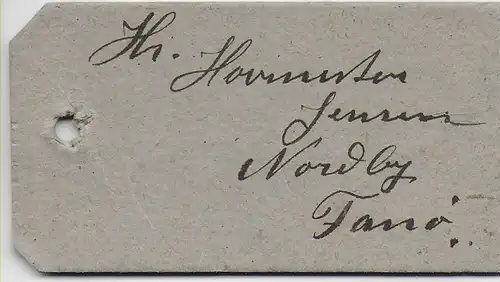 Hr.
Hovmester
Jensen
Nordby
Fanø.